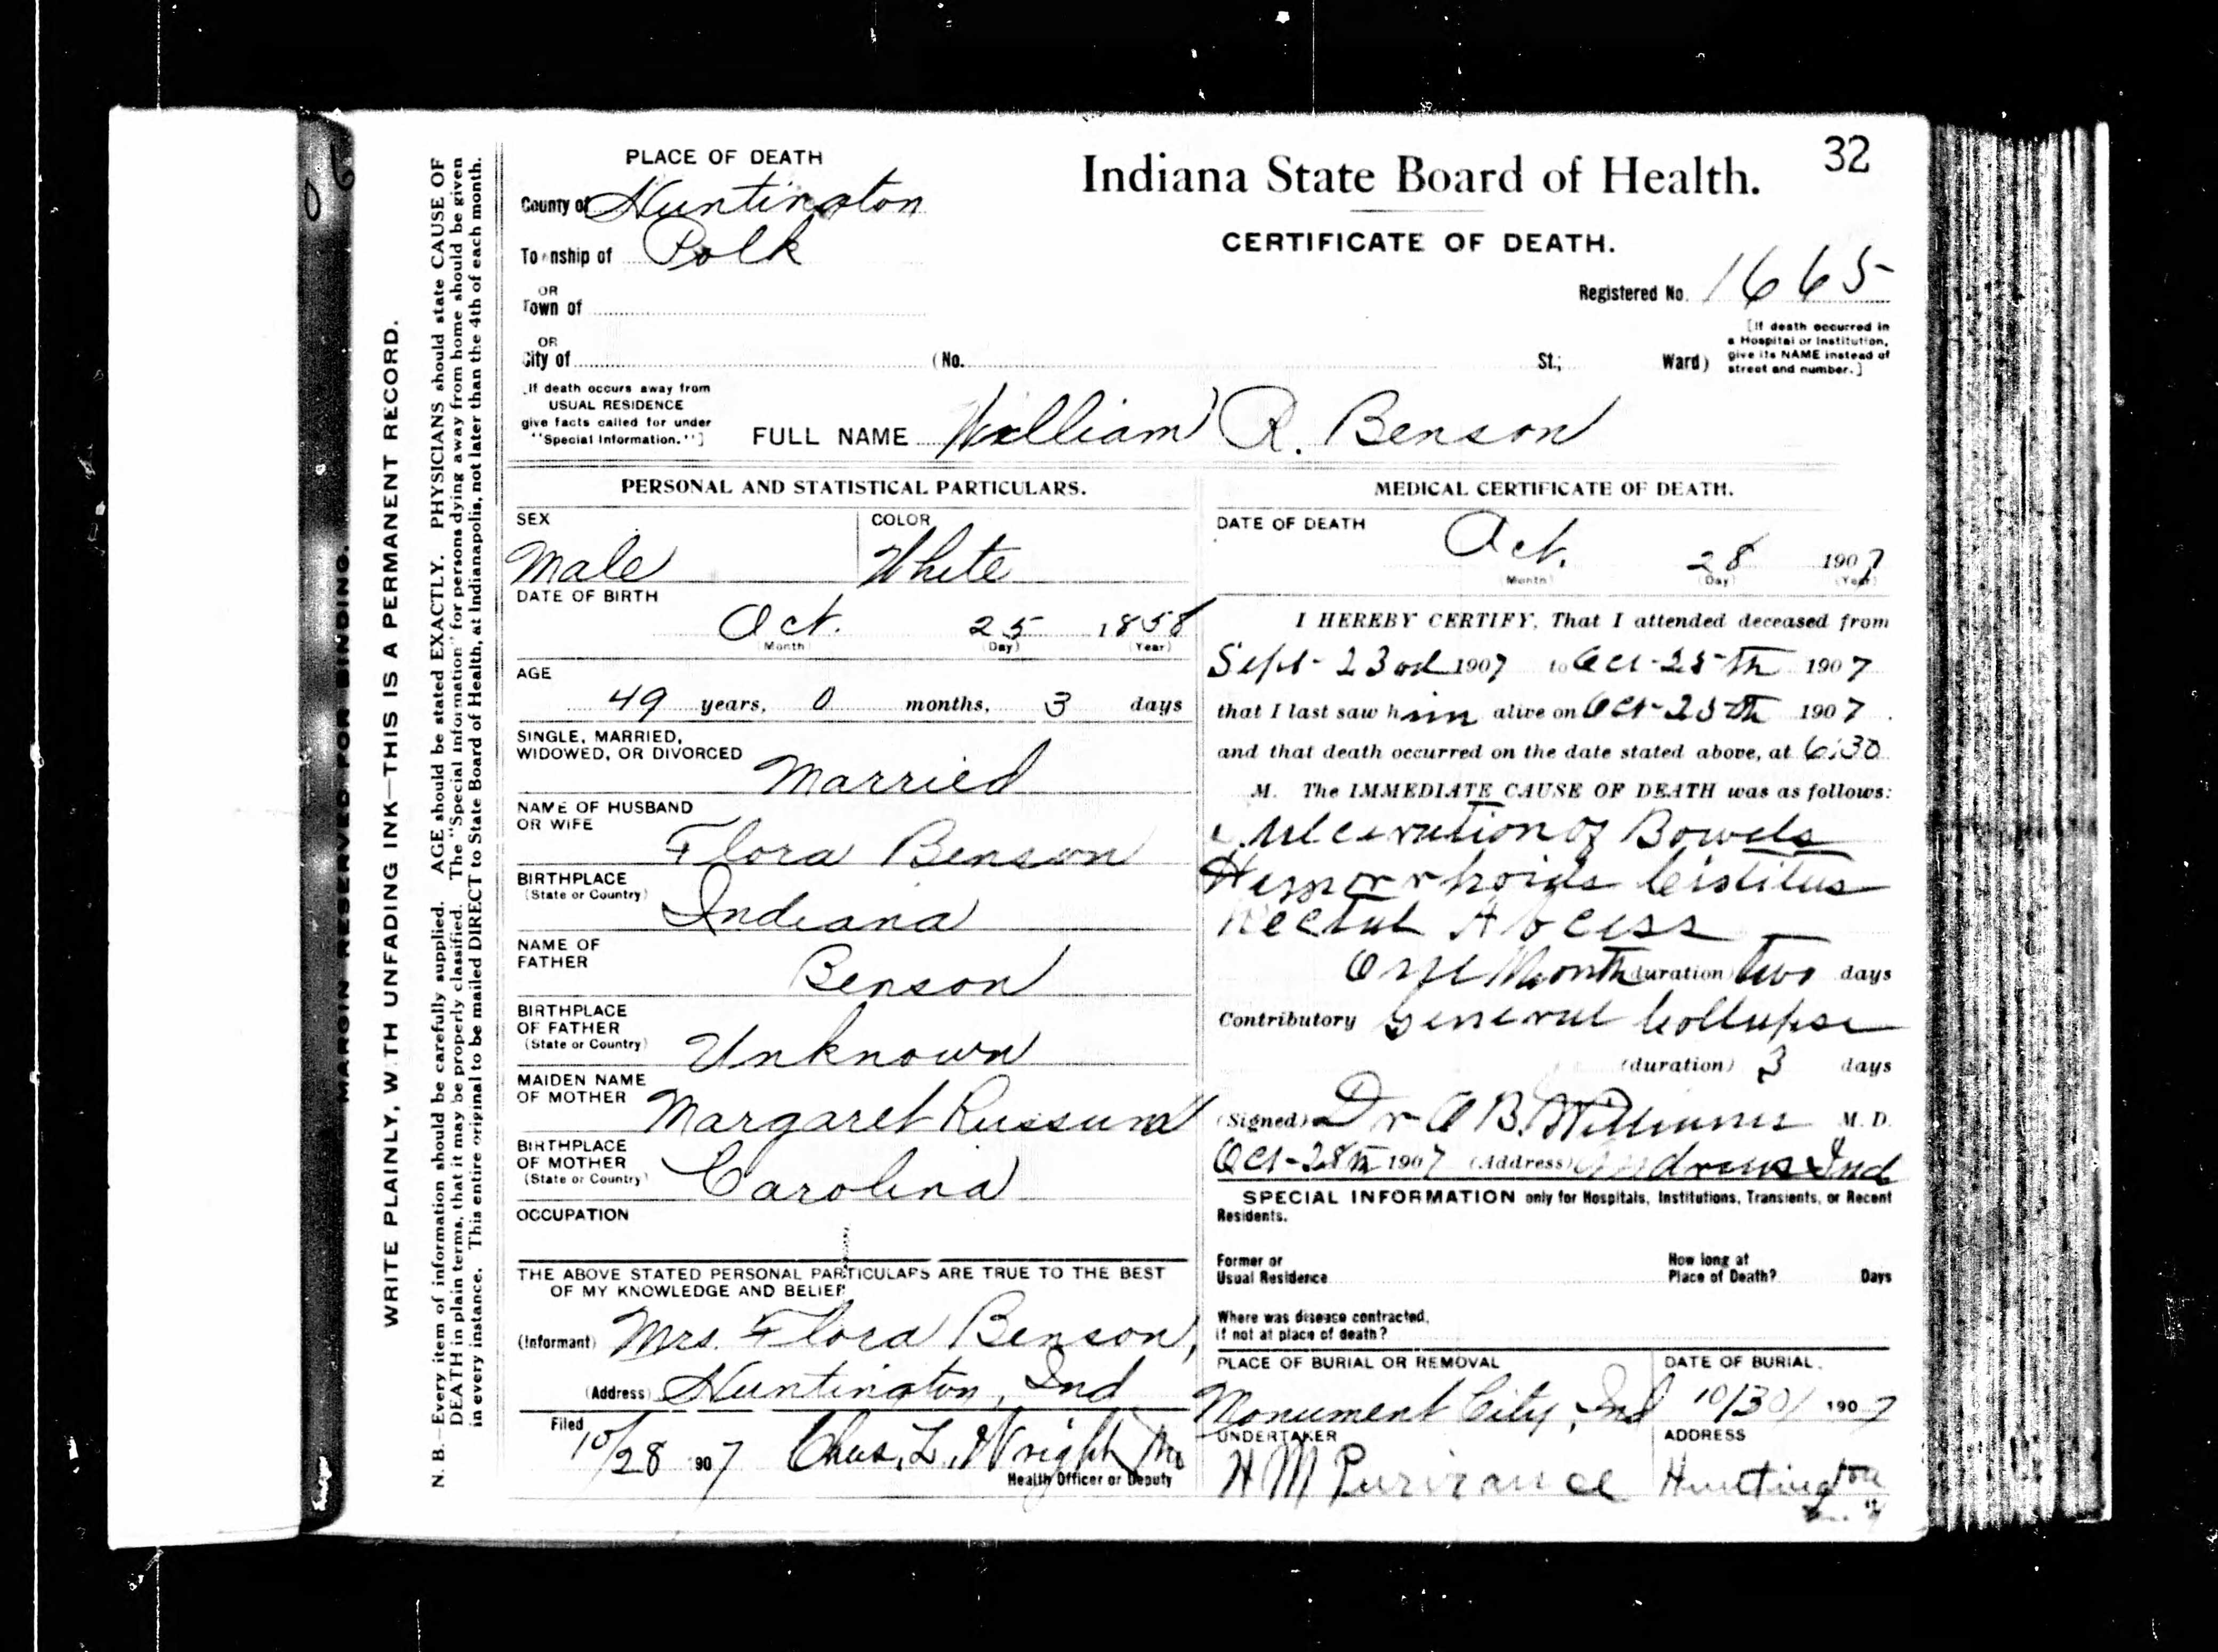 32
PLACE OF DEATH
Indiana State Board of Health.
County of Huntington
CERTIFICATE OF DEATH.
To nship of Polk
Registered No. 1665
OR
Town of
[If death occurred in
a Hospital or Institution,
give its NAME instead of
street and number.]
OR
City of (No. St.; Ward)
[If death occurs away from
USUAL RESIDENCE
give facts called for under
"Special Information."]
FULL NAME William R. Benson
PERSONAL AND STATISTICAL PARTICULARS.
SEX
Male
COLOR
White
DATE OF BIRTH
Oct. 25 1858
(Month) (Day) (Year)
AGE
49 years, 0 months, 3 days
SINGLE, MARRIED,
WIDOWED, OR DIVORCED
Married
NAME OF HUSBAND
OR WIFE
Flora Benson
BIRTHPLACE
(State or Country)
Indiana
NAME OF
FATHER
Benson
BIRTHPLACE
OF FATHER
(State or Country)
Unknown
MAIDEN NAME
OF MOTHER
Margaret Russum
BIRTHPLACE
OF MOTHER
(State or Country)
Carolina
OCCUPATION
THE ABOVE STATED PERSONAL PARTICULARS ARE TRUE TO THE BEST
OF MY KNOWLEDGE AND BELIEF
(Informant) Mrs. Flora Benson,
(Address) Huntington, Ind
Filed
10/28 1907 Chas. L. Wright Md
Health Officer or Deputy
MEDICAL CERTIFICATE OF DEATH.
DATE OF DEATH
Oct. 28 1907
(Month) (Day) (Year)
I HEREBY CERTIFY, That I attended deceased from
Sept - 23rd 1907 to Oct - 25th 1907
that I last saw him alive on Oct - 25th 1907.
and that death occurred on the date stated above, at 6:30
M. The IMMEDIATE CAUSE OF DEATH was as follows:
Ulceration of Bowels
Hemorrhoids Cistitus
Rectal Abcess
One Month (duration) two days
Contributory General Collapse
(duration) 3 days
(Signed) Dr A B. Williams M. D.
Oct - 28th 1907 (Address) Andrews Ind
SPECIAL INFORMATION only for Hospitals, Institutions, Transients, or Recent
Residents.
Former or
Usual Residence
How long at
Place of Death? Days
Where was disease contracted,
if not at place of death?
PLACE OF BURIAL OR REMOVAL
Monument City, Ind
DATE OF BURIAL.
10/30/ 1907
UNDERTAKER
H M Purviance
ADDRESS
Huntington
MARGIN RESERVED FOR BINDING.
WRITE PLAINLY, WITH UNFADING INK—THIS IS A PERMANENT RECORD.
N. B.—Every item of information should be carefully supplied. AGE should be stated EXACTLY. PHYSICIANS should state CAUSE OF
DEATH in plain terms, that it may be properly classified. The "Special Information" for persons dying away from home should be given
in every instance. This entire original to be mailed DIRECT to State Board of Health, at Indianapolis, not later than the 4th of each month.